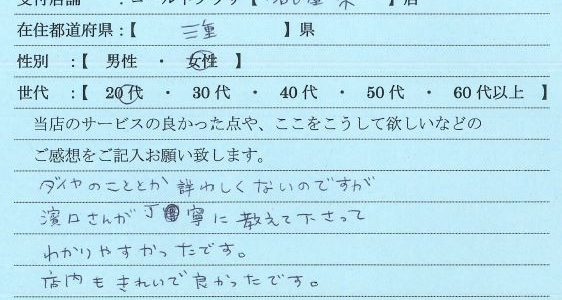 在住都道府県：【 三重 】県
性別：【 男性 ・ 女性 】
世代：【 20代 ・ 30代 ・ 40代 ・ 50代 ・ 60代以上 】
当店のサービスの良かった点や、ここをこうして欲しいなどの
ご感想をご記入お願い致します。
ダイヤのこととか詳わしくないのですが
濱口さんが丁寧に教えて下さって
わかりやすかったです。
店内もきれいで良かったです。